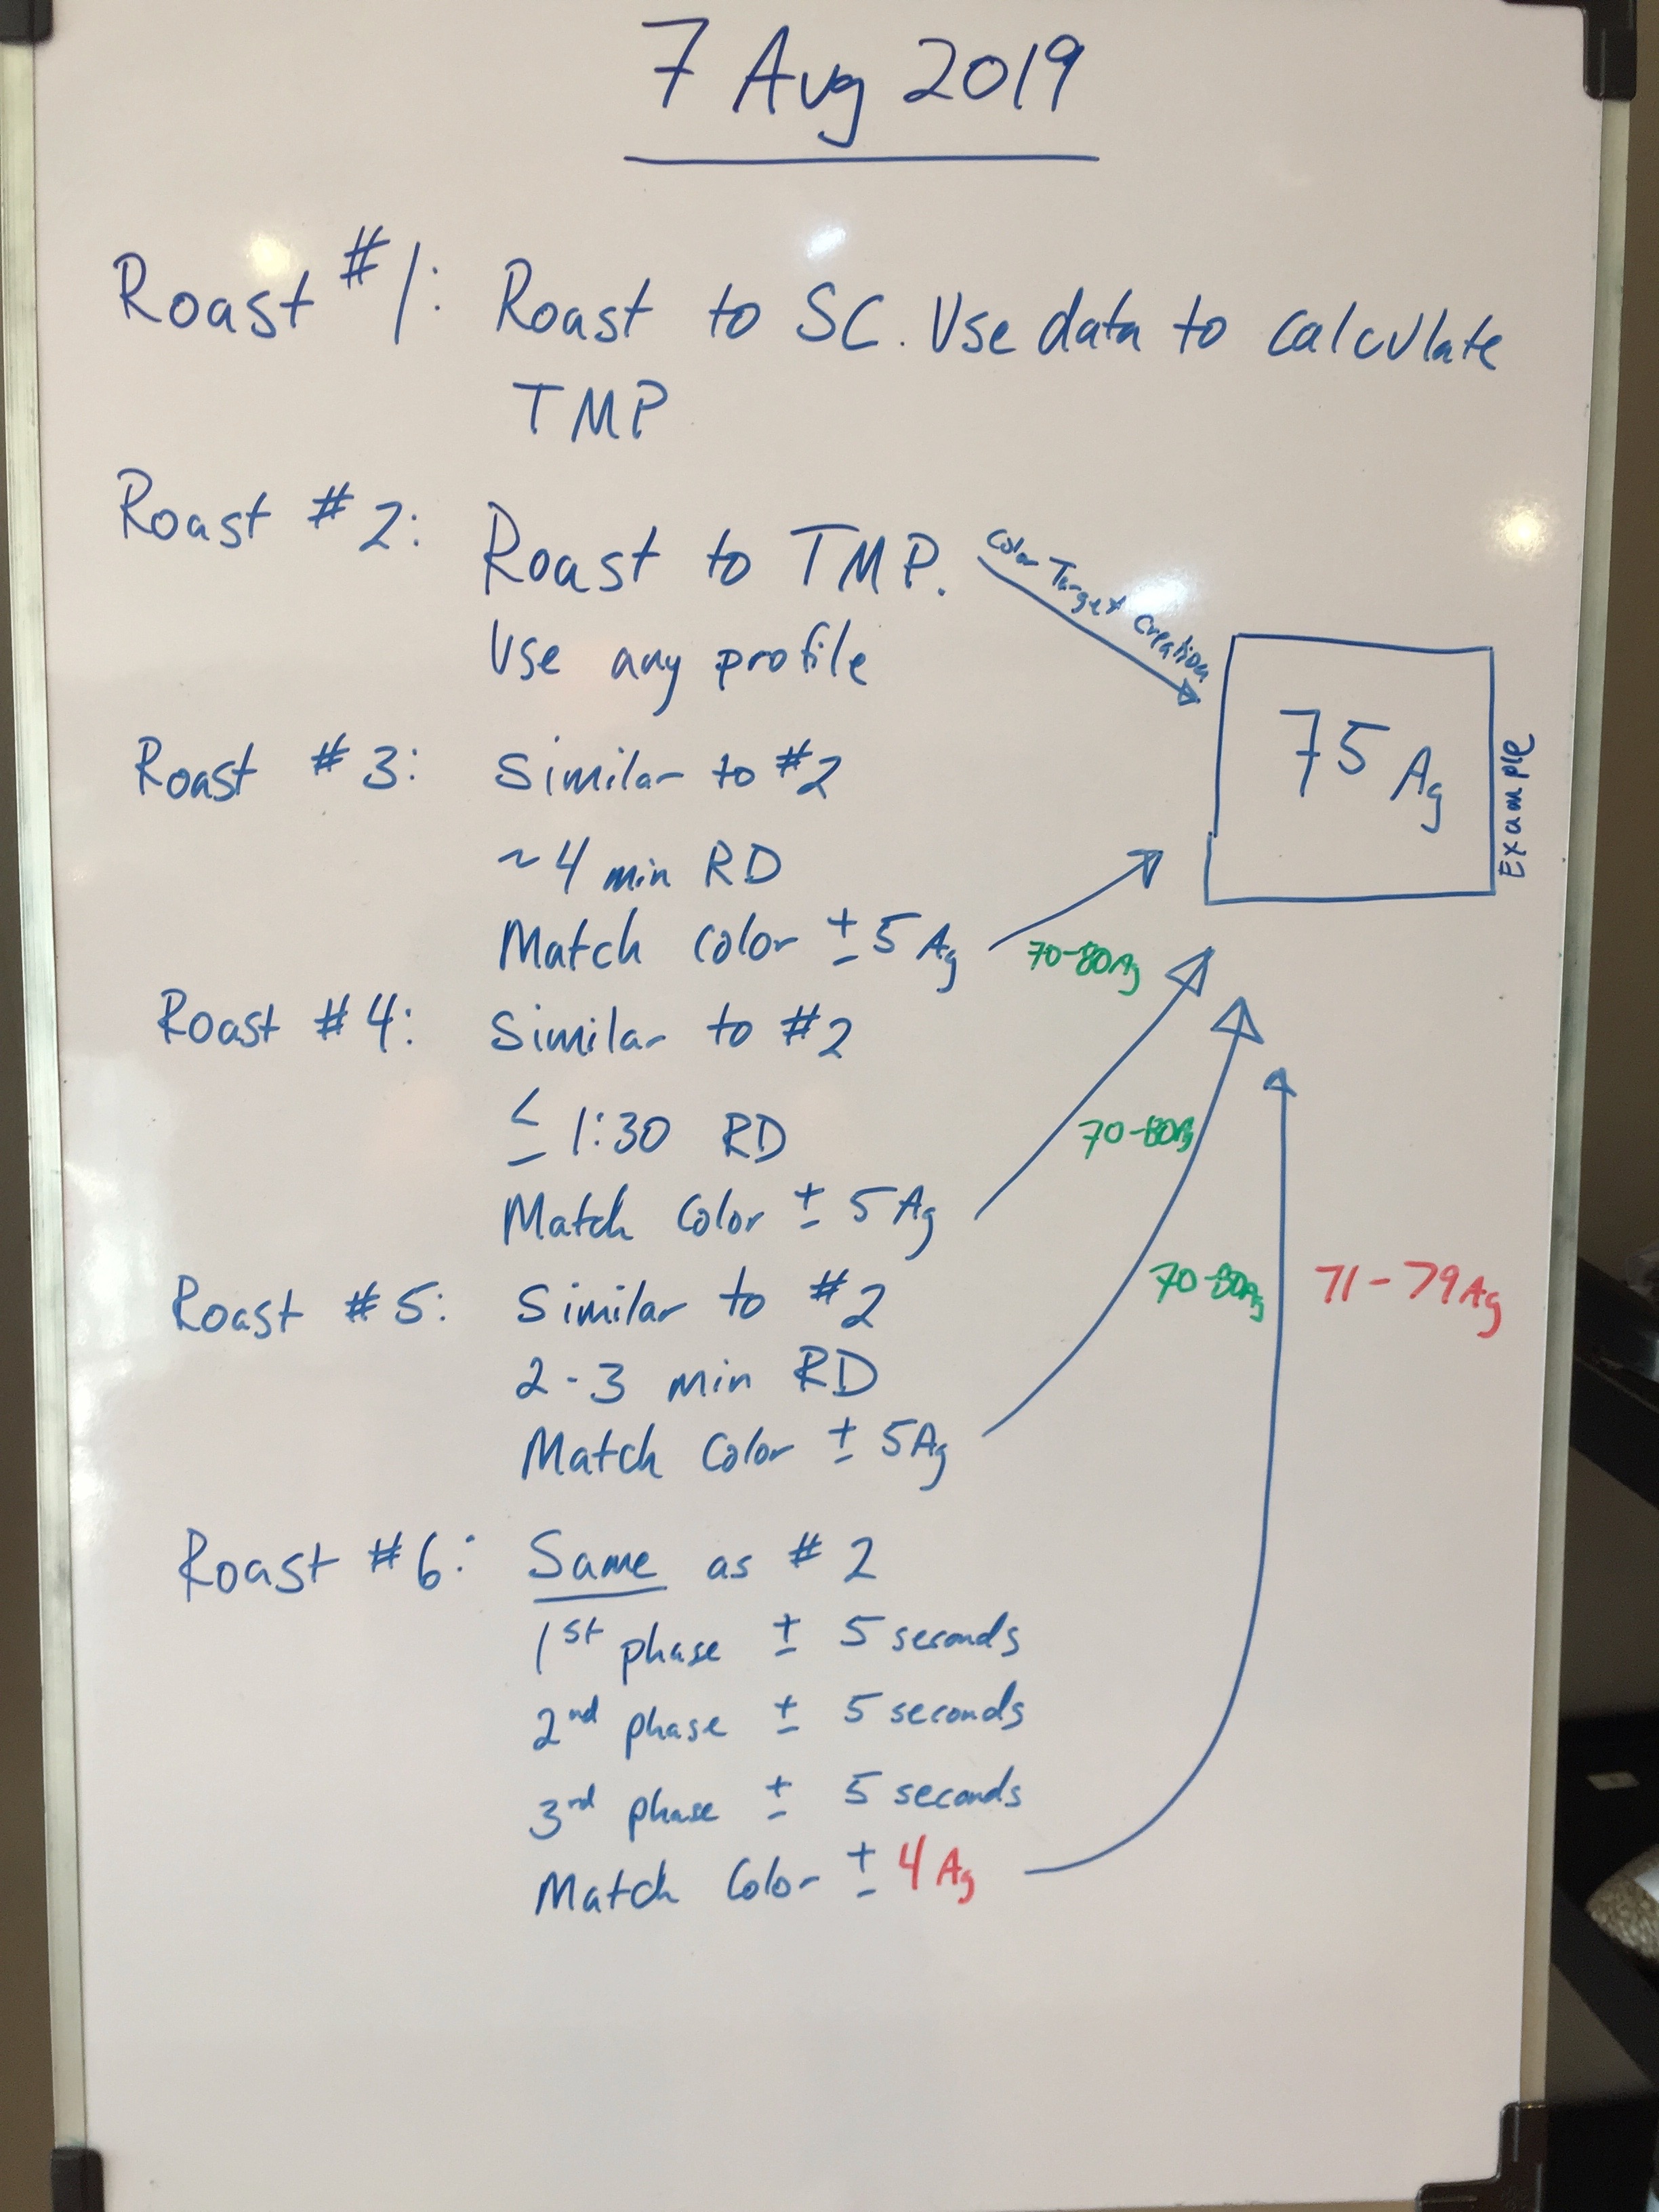 7 Aug 2019
Roast #1: Roast to SC. Use data to calculate
TMP
Roast #2: Roast to TMP.
Use any profile
Color Target Creation
75 Ag
Example
Roast #3: Similar to #2
~4 min RD
Match color ± 5 Ag
70-80Ag
Roast #4: Similar to #2
≤ 1:30 RD
Match Color ± 5 Ag
70-80Ag
Roast #5: Similar to #2
2-3 min RD
Match Color ± 5Ag
70-80Ag
71-79Ag
Roast #6: Same as #2
1st phase ± 5 seconds
2nd phase ± 5 seconds
3rd phase ± 5 seconds
Match Color ± 4 Ag